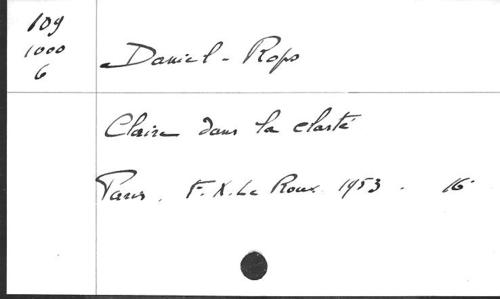 109
1000
6
Daniel-Rops
Claire dans la clarté
Paris. F.X. Le Roux 1953. 16°